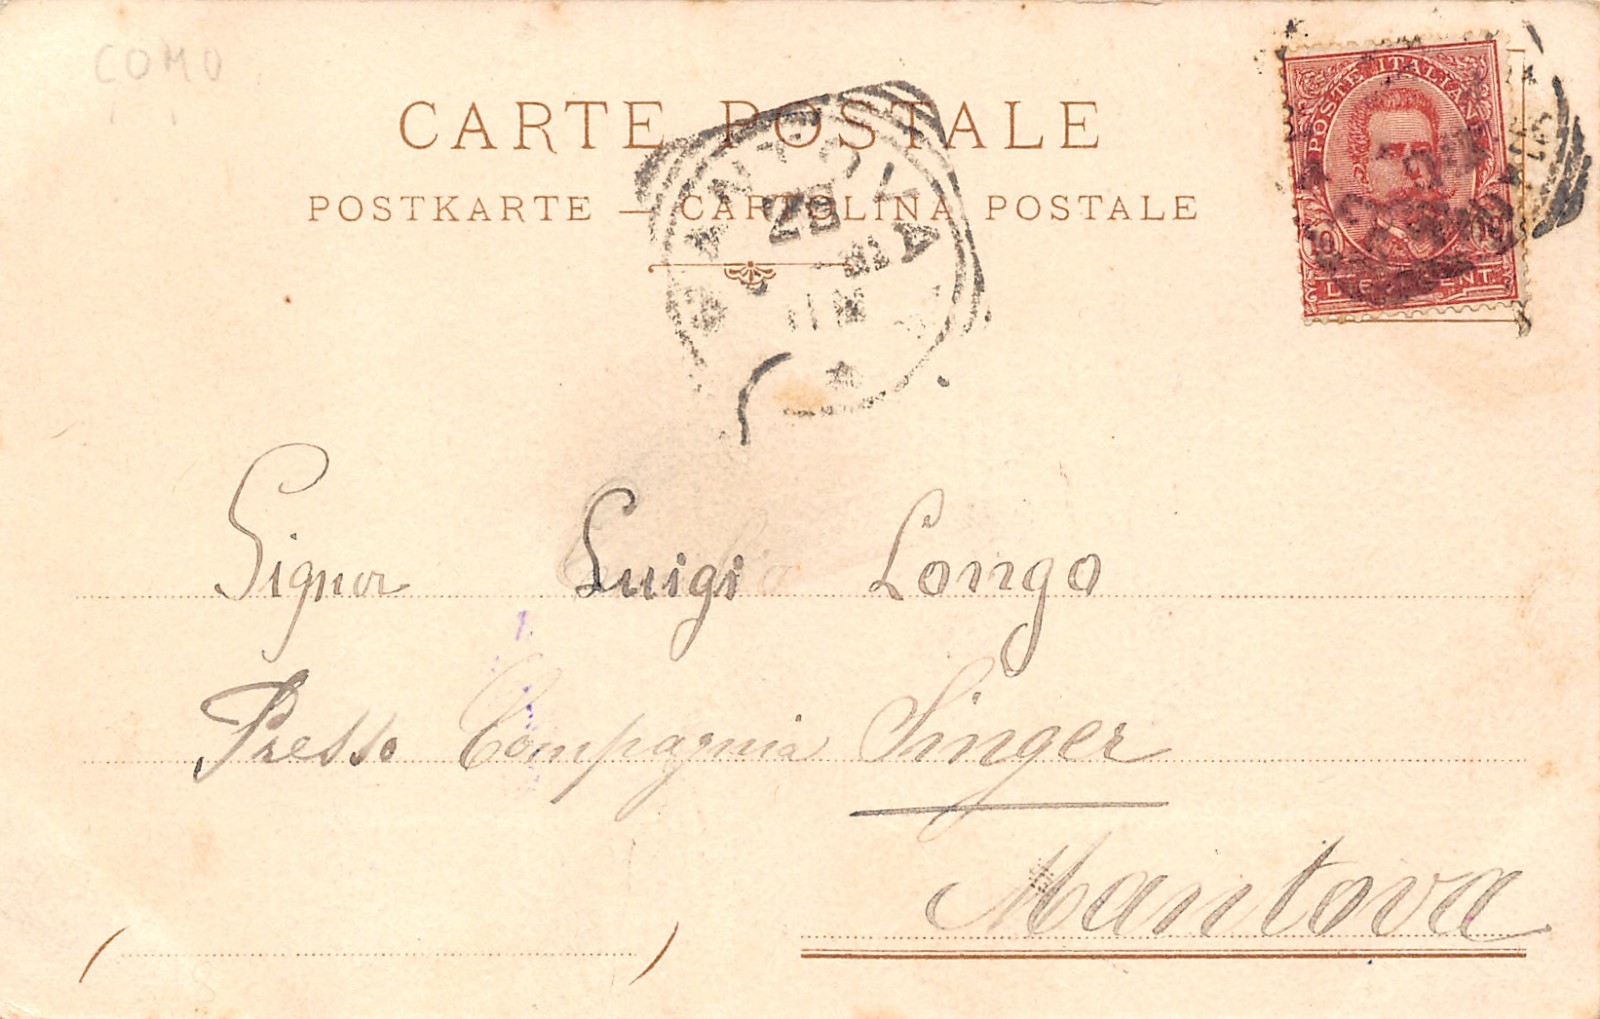 COMO
CARTE POSTALE
POSTKARTE — CARTOLINA POSTALE
POSTE ITALIANE
10
MANTOVA
Signor Luigi Longo
Presso Compagnia Singer
Mantova